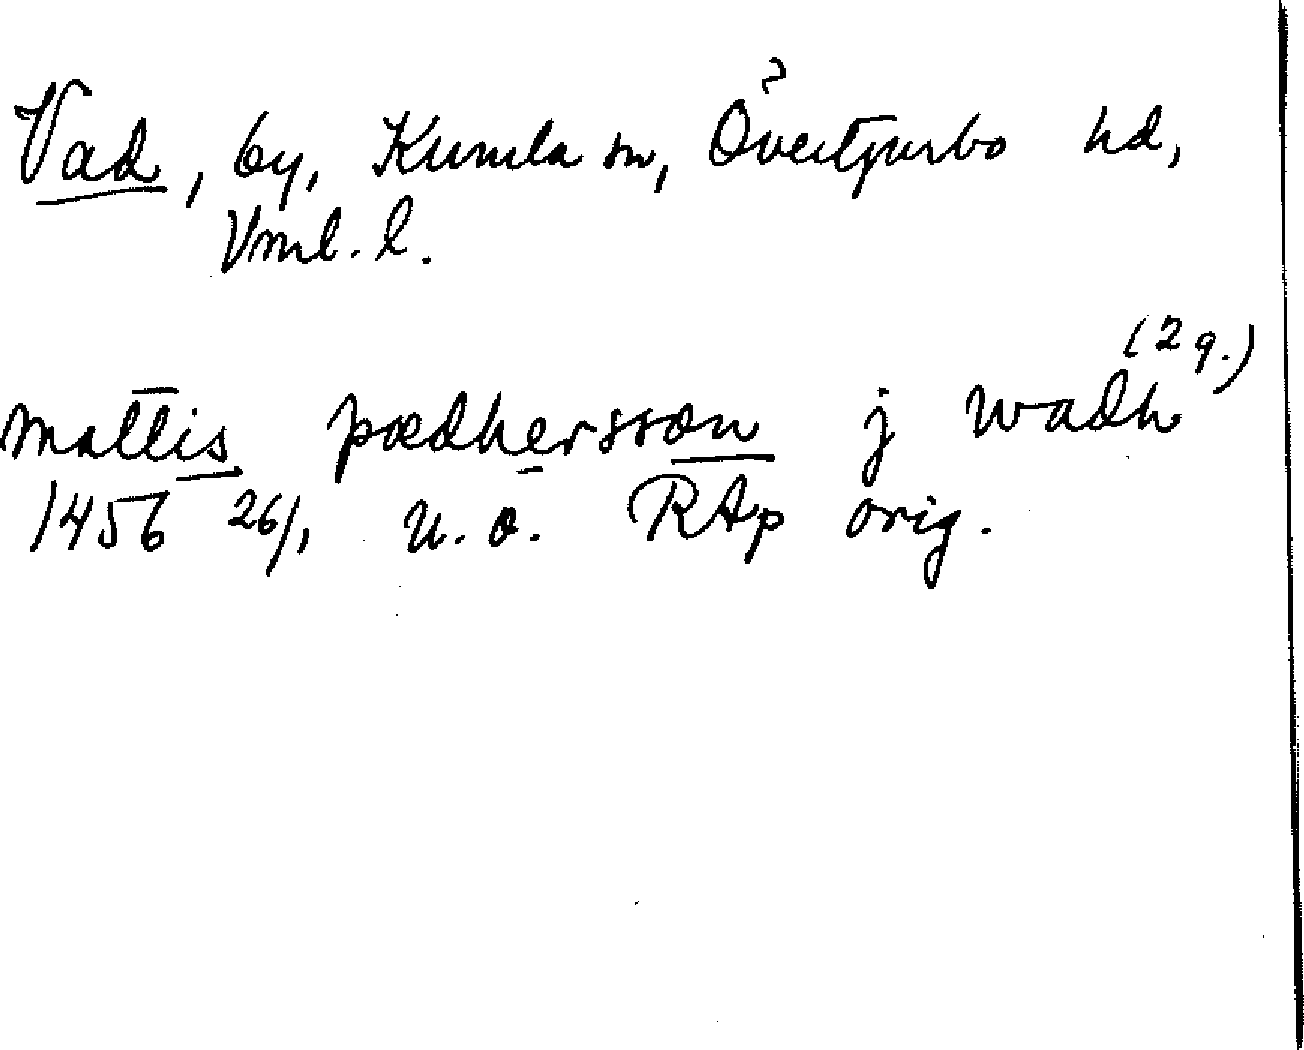 Vad, by, Kumla sn, Övertjurbo hd,
Vml. l.
mattis pædhersson j wadh (2 g.)
1456 26/1 u.o. RAp orig.